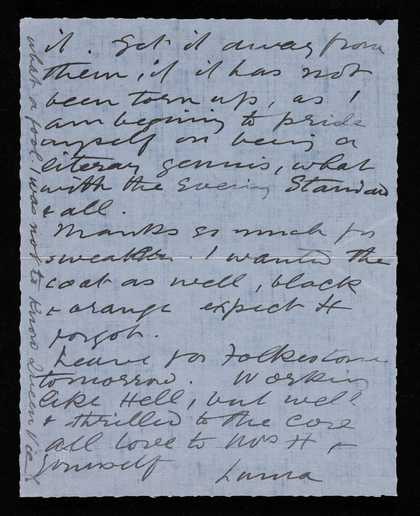 it. Get it away from
them, if it has not
been torn up, as I
am begining to pride
myself on being a
literary genius, what
with the Evening Standard
& all.
Thanks so much for
sweater. I wanted the
coat as well, black
& orange expect H
forgot.
Leave for Folkestone
tomorrow. Working
like Hell, but well
& thrilled to the core
all love to Mrs H &
yourself
what a fool I was not to know Queen Vic!